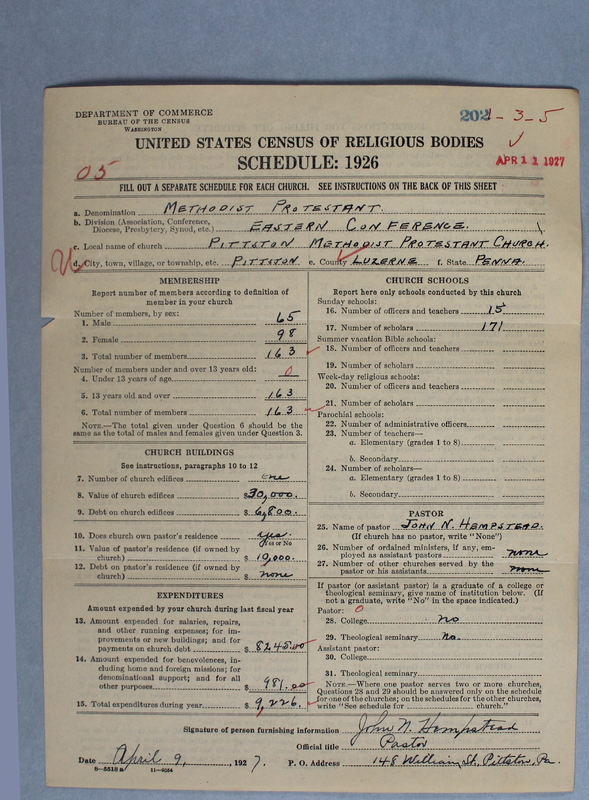 DEPARTMENT OF COMMERCE
BUREAU OF THE CENSUS
WASHINGTON
202-3-5
UNITED STATES CENSUS OF RELIGIOUS BODIES
SCHEDULE: 1926
APR 11 1927
05
FILL OUT A SEPARATE SCHEDULE FOR EACH CHURCH. SEE INSTRUCTIONS ON THE BACK OF THIS SHEET
a. Denomination METHODIST PROTESTANT.
b. Division (Association, Conference, Diocese, Presbytery, Synod, etc.) EASTERN CONFERENCE.
c. Local name of church PITTSTON METHODIST PROTESTANT CHURCH.
d. City, town, village, or township, etc. PITTSTON e. County LUZERNE f. State PENNA.
MEMBERSHIP
Report number of members according to definition of
member in your church
Number of members, by sex:
1. Male 65
2. Female 98
3. Total number of members 163
Number of members under and over 13 years old:
4. Under 13 years of age 0
5. 13 years old and over 163
6. Total number of members 163
NOTE.—The total given under Question 6 should be
same as the total of males and females given under Question 3.
CHURCH BUILDINGS
See instructions, paragraphs 10 to 12
7. Number of church edifices one
8. Value of church edifices $30,000.
9. Debt on church edifices $6,800.
10. Does church own pastor's residence yes.
Yes or No
11. Value of pastor's residence (if owned by
church) $ 10,000.
12. Debt on pastor's residence (if owned by
church) $ none
EXPENDITURES
Amount expended by your church during last fiscal year
13. Amount expended for salaries, repairs,
and other running expenses; for im-
provements or new buildings; and for
payments on church debt $ 8245.00
14. Amount expended for benevolences, in-
cluding home and foreign missions; for
denominational support; and for all
other purposes $ 981.00
15. Total expenditures during year $ 9,226.
CHURCH SCHOOLS
Report here only schools conducted by this church
Sunday schools:
16. Number of officers and teachers 15
17. Number of scholars 171
Summer vacation Bible schools:
18. Number of officers and teachers
19. Number of scholars
Week-day religious schools:
20. Number of officers and teachers
21. Number of scholars
Parochial schools:
22. Number of administrative officers
23. Number of teachers—
a. Elementary (grades 1 to 8)
b. Secondary
24. Number of scholars—
a. Elementary (grades 1 to 8)
b. Secondary
PASTOR
25. Name of pastor JOHN N. HEMPSTEAD.
(If church has no pastor, write "None")
26. Number of ordained ministers, if any, em-
ployed as assistant pastors none
27. Number of other churches served by the
pastor or his assistants none
If pastor (or assistant pastor) is a graduate of a college or
theological seminary, give name of institution below. (If
not a graduate, write "No" in the space indicated.)
Pastor: 0
28. College no
29. Theological seminary No.
Assistant pastor:
30. College
31. Theological seminary
NOTE.—Where one pastor serves two or more churches,
Questions 28 and 29 should be answered only on the schedule
for one of the churches; on the schedules for the other churches,
write "See schedule for church."
Signature of person furnishing information John N. Hempstead
Official title Pastor
Date April 9, 1927. P. O. Address 148 William St, Pittston, Pa.
8—5518a 11—4034